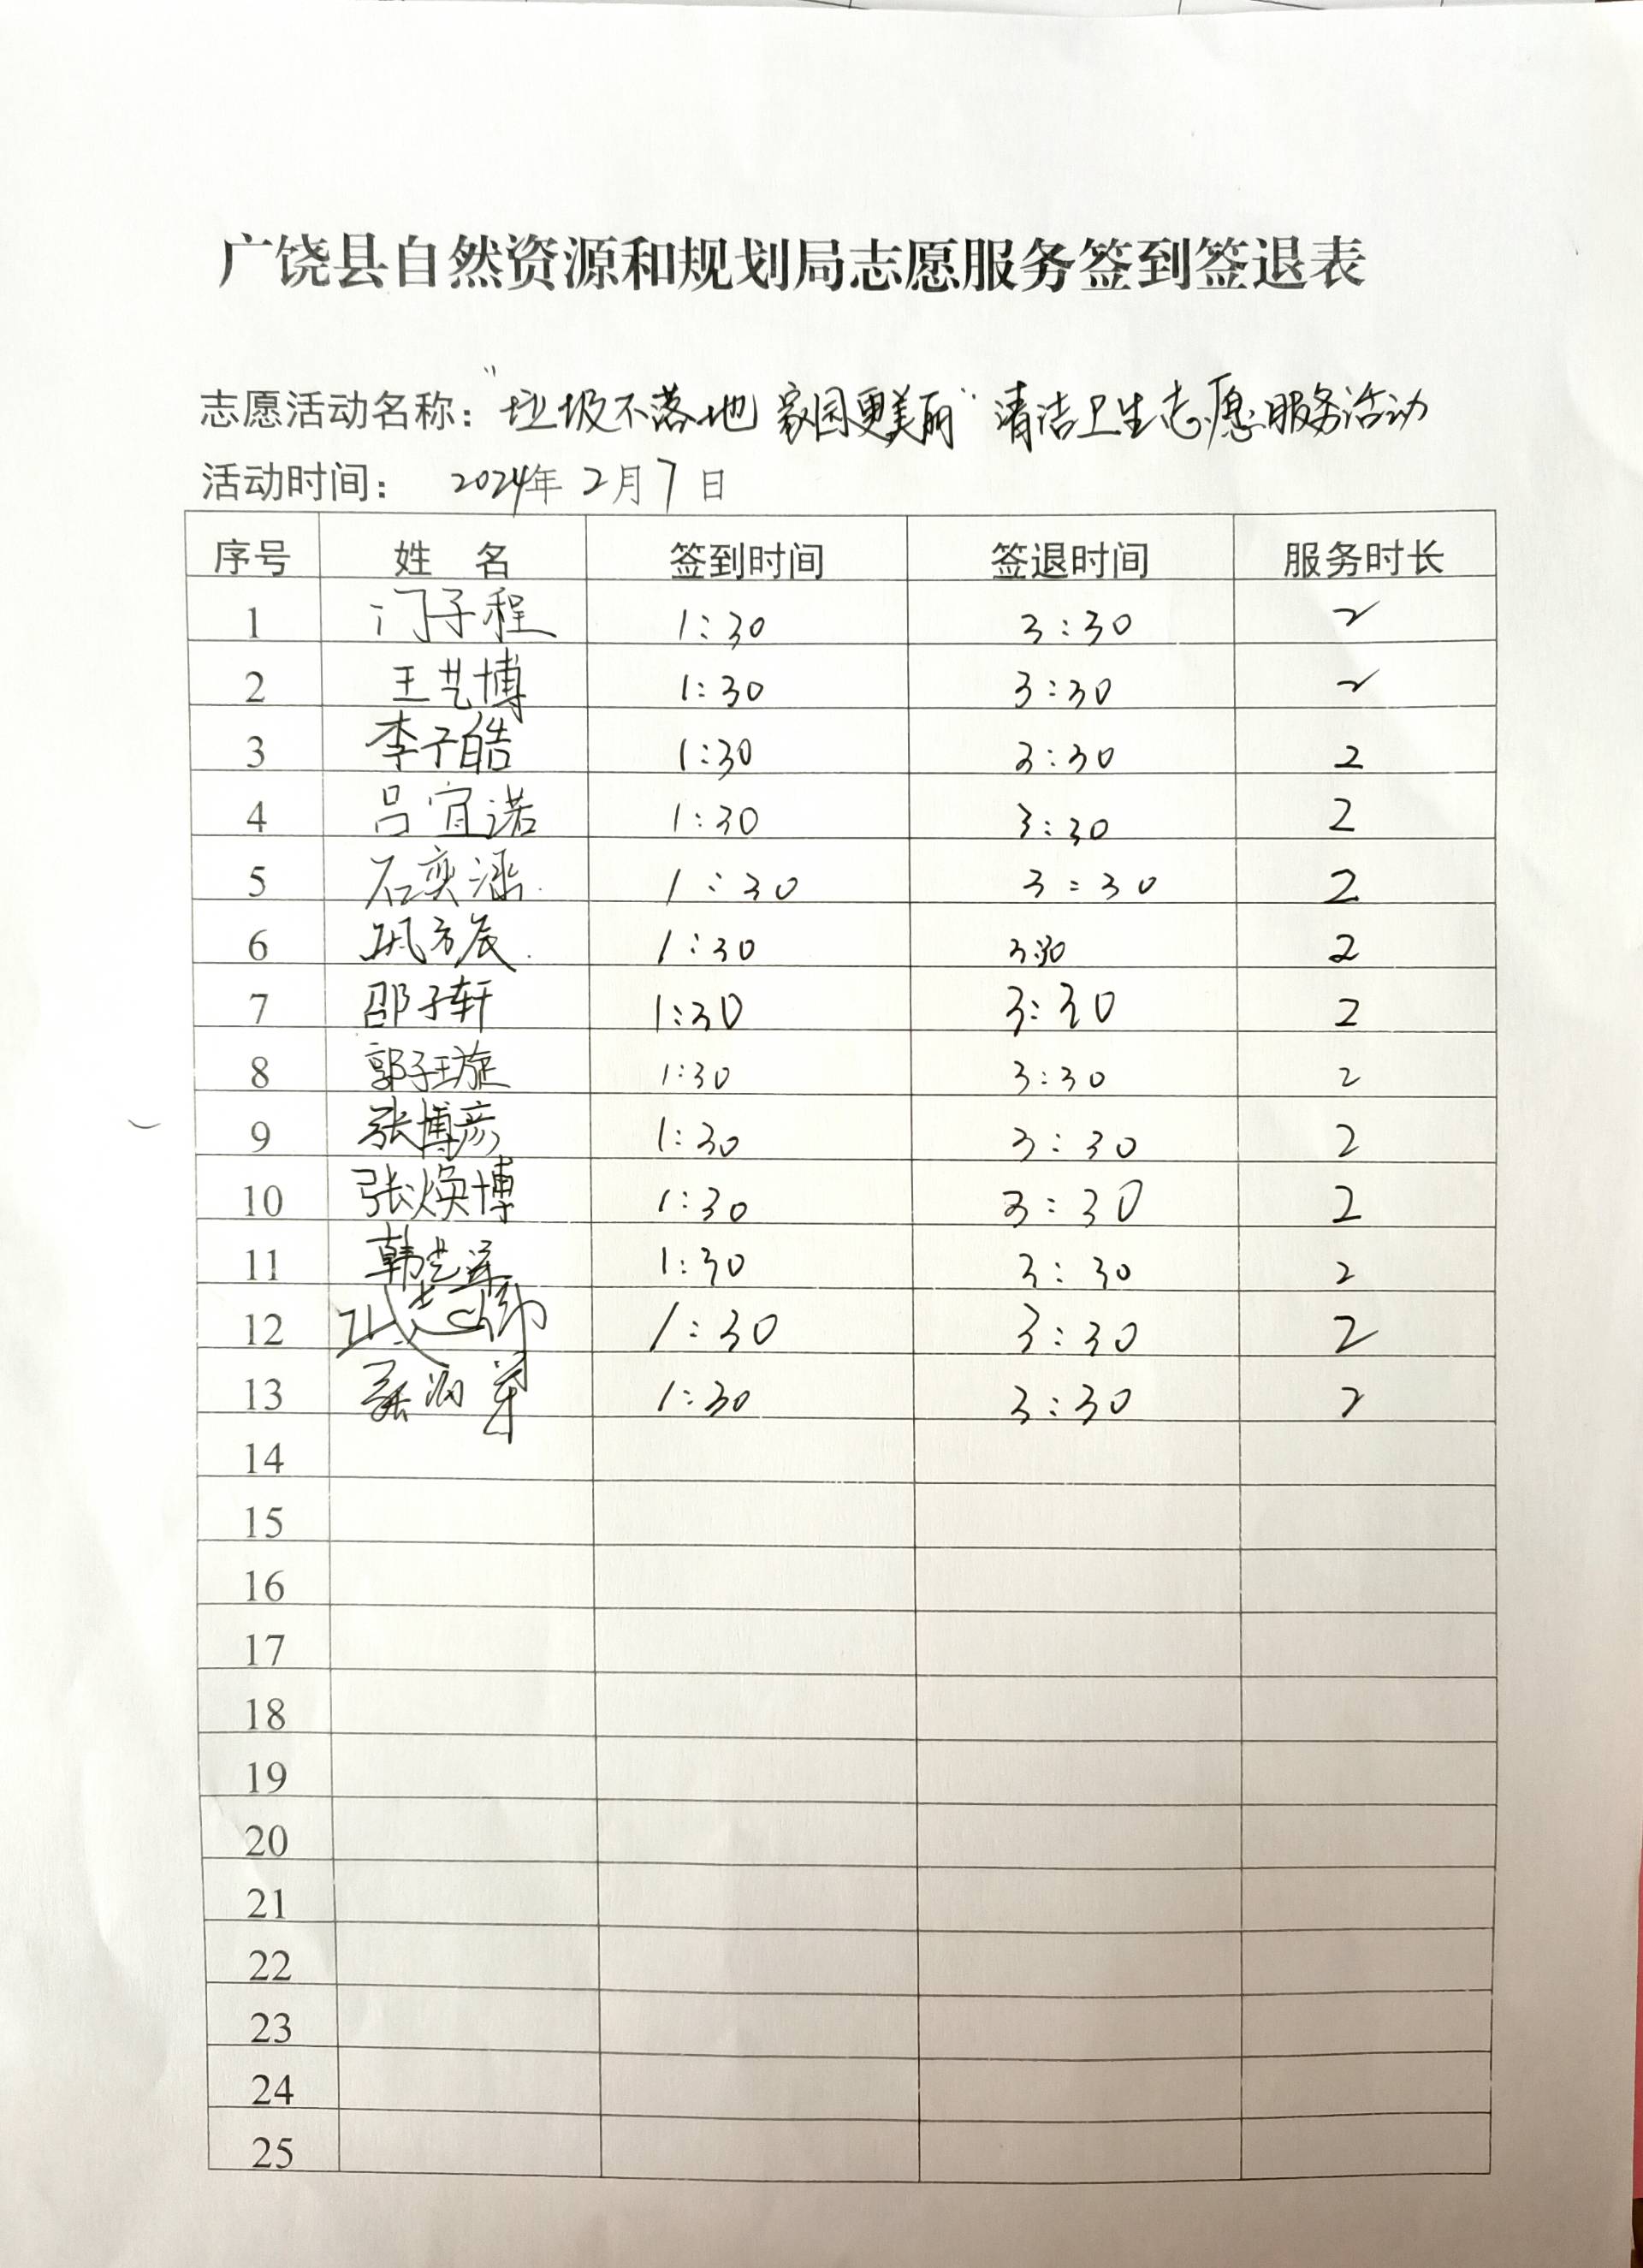 广饶县自然资源和规划局志愿服务签到签退表
志愿活动名称：“垃圾不落地 家园更美丽”清洁卫生志愿服务活动
活动时间： 2024年 2月 7 日
序号 姓 名 签到时间 签退时间 服务时长
1 门子程 1:30 3:30 2
2 王艺博 1:30 3:30 2
3 李子皓 1:30 3:30 2
4 吕宜诺 1:30 3:30 2
5 石奕涵 1:30 3:30 2
6 巩方辰 1:30 3:30 2
7 邵子轩 1:30 3:30 2
8 郭子璇 1:30 3:30 2
9 张博彦 1:30 3:30 2
10 张焕博 1:30 3:30 2
11 韩艺 1:30 3:30 2
12 1:30 3:30 2
13 1:30 3:30 2
14
15
16
17
18
19
20
21
22
23
24
25